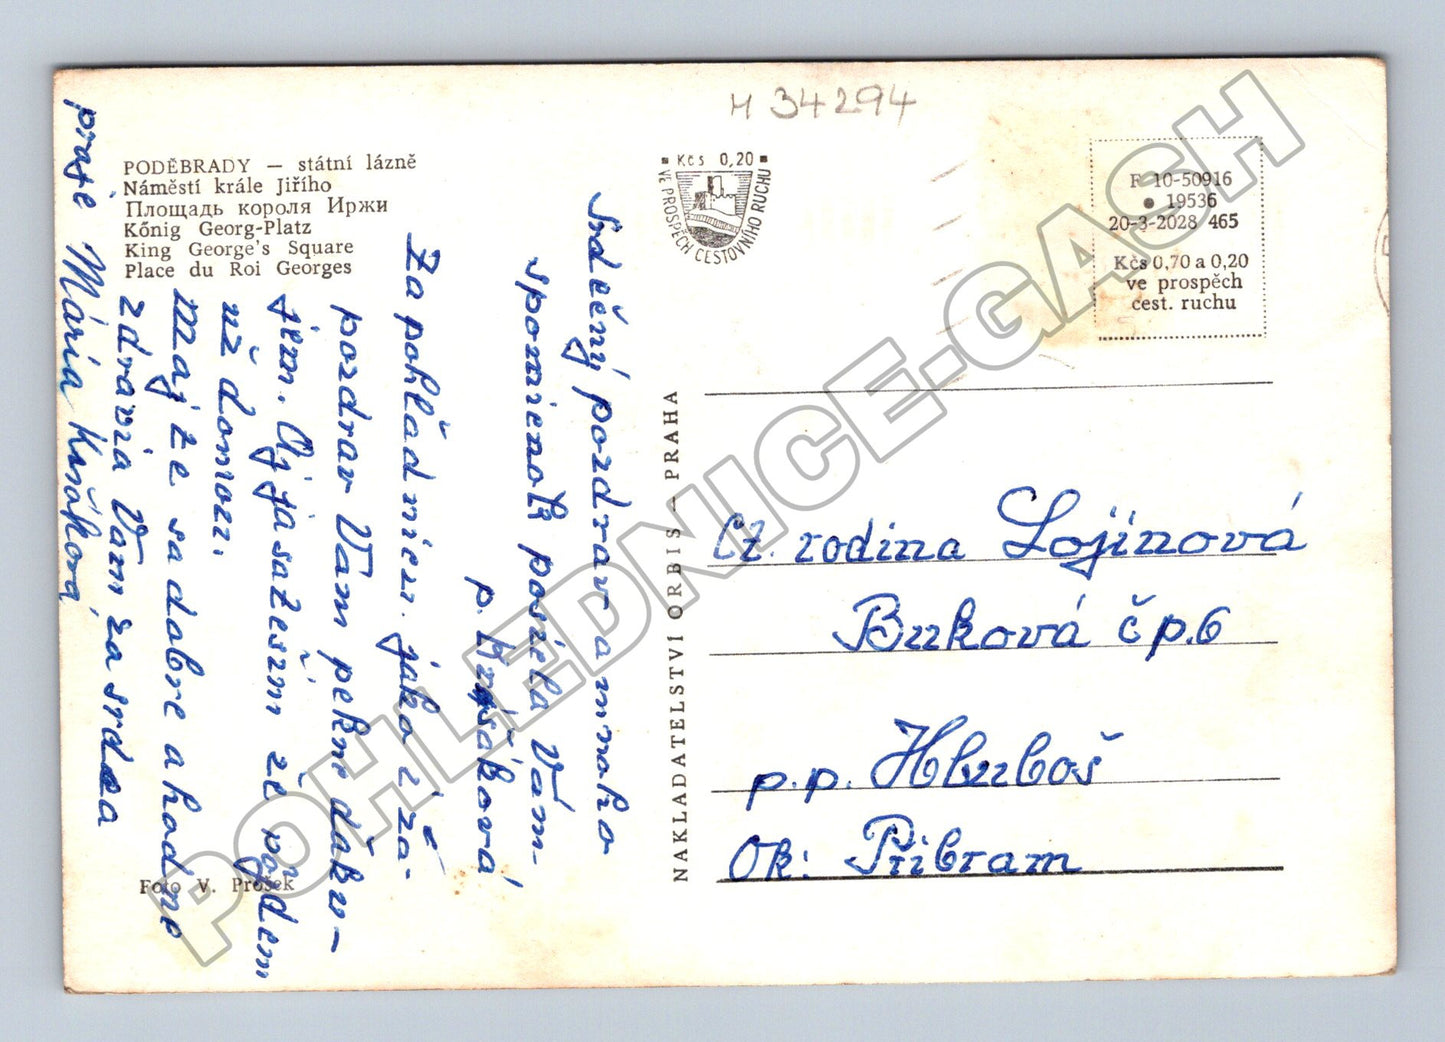 M 34294
PODĚBRADY — státní lázně
Náměstí krále Jiřího
Площадь короля Иржи
Kőnig Georg-Platz
King George's Square
Place du Roi Georges
Kčs 0,20
VE PROSPĚCH CESTOVNÍHO RUCHU
F 10-50916
● 19536
20-3-2028 465
Kčs 0,70 a 0,20
ve prospěch
cest. ruchu
Srdečný pozdrav a mnoho
spomienok posiela Vám
p. Krišáková
Za pohľadnicu. jako i za-
pozdrav Vám pekne ďaku-
jem. Aj ja sa teším že pôjdem
už domov.
Majte sa dobre a hodne
zdravia Vám za srdca
praje Mária
NAKLADATELSTVÍ ORBIS — PRAHA
Ct. rodina Lojínová
Buková čp. 6
p.p. Hluboš
Ok: Příbram
Foto V. Prošek
POHLEDNICE-GASH